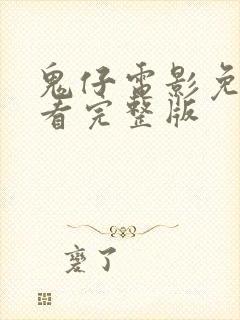 鬼仔電影免
看完整版
了